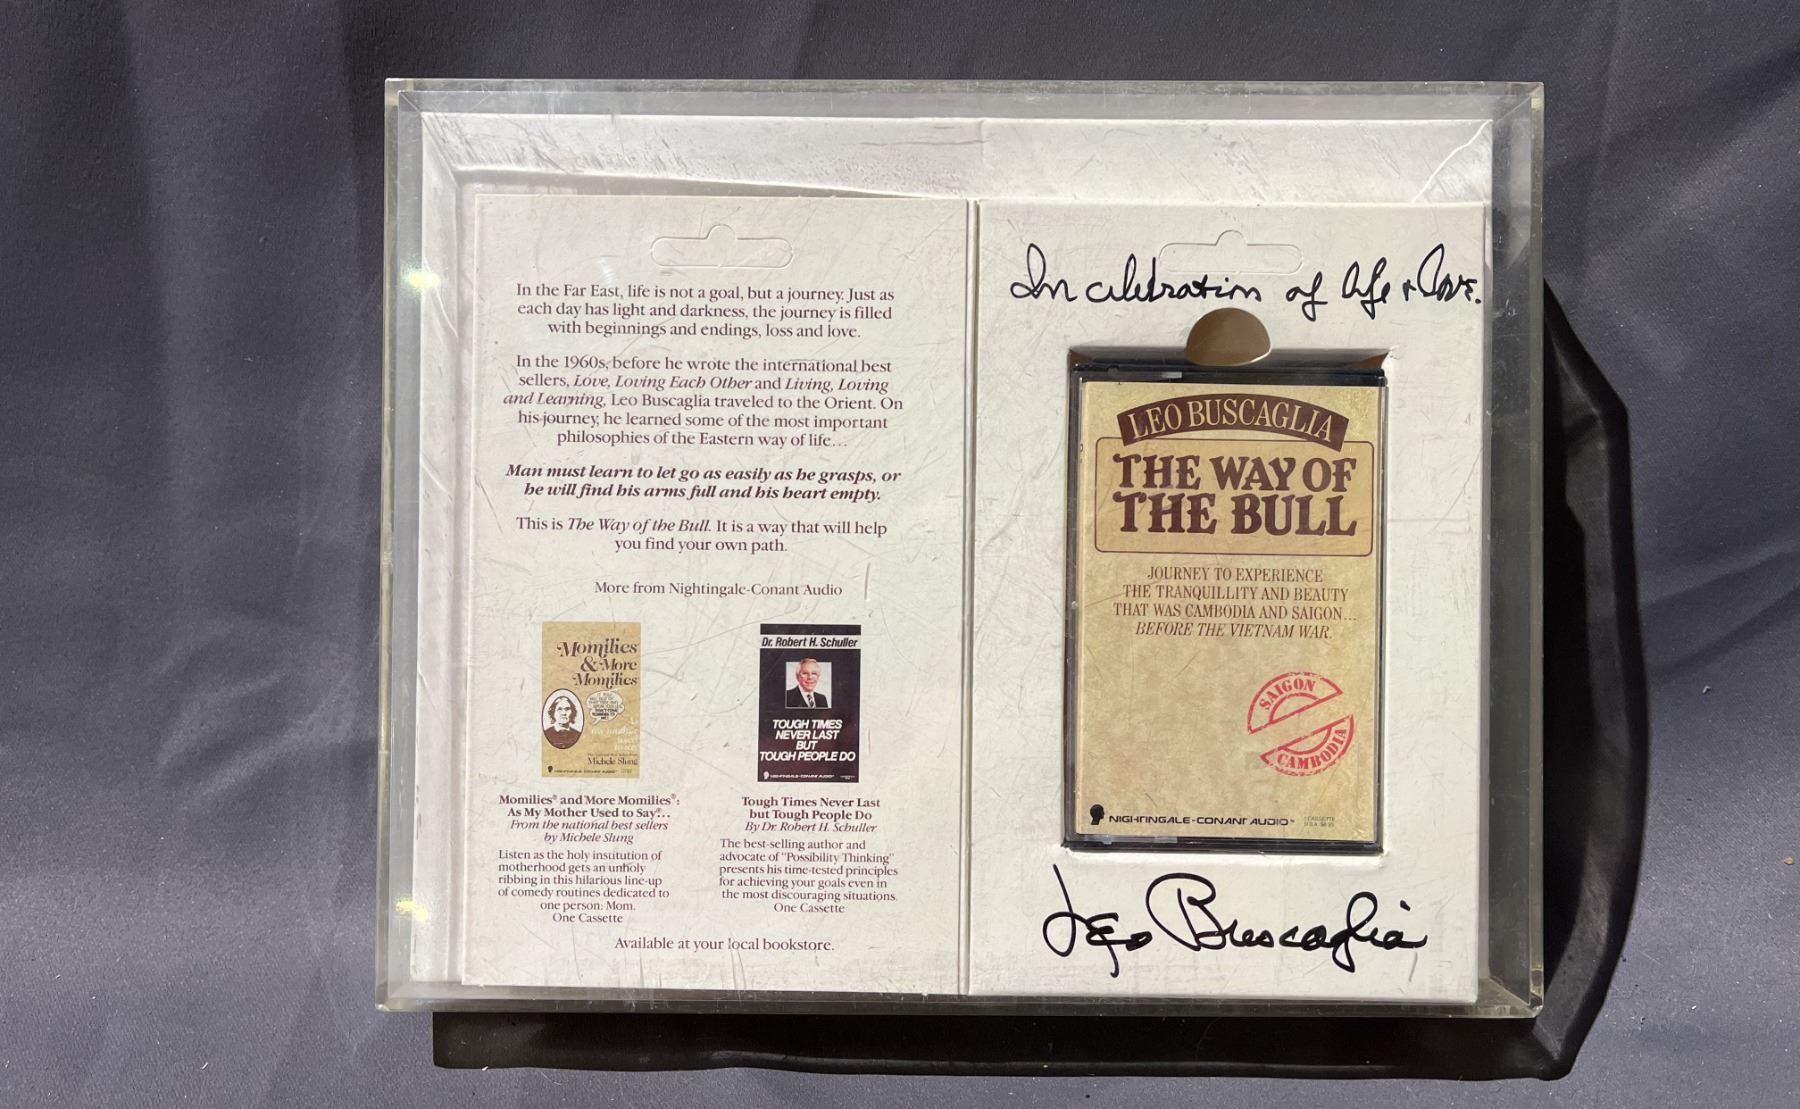 In the Far East, life is not a goal, but a journey. Just as
each day has light and darkness, the journey is filled
with beginnings and endings, loss and love.
In the 1960s, before he wrote the international best
sellers, Love, Loving Each Other and Living, Loving
and Learning, Leo Buscaglia traveled to the Orient. On
his journey, he learned some of the most important
philosophies of the Eastern way of life...
Man must learn to let go as easily as he grasps, or
he will find his arms full and his heart empty.
This is The Way of the Bull. It is a way that will help
you find your own path.
More from Nightingale-Conant Audio
Momilies
& More
Momilies
Michele Slung
NIGHTINGALE-CONANT AUDIO
Momilies® and More Momilies®:
As My Mother Used to Say®...
From the national best sellers
by Michele Slung
Listen as the holy institution of
motherhood gets an unholy
ribbing in this hilarious line-up
of comedy routines dedicated to
one person: Mom.
One Cassette
Dr. Robert H. Schuller
TOUGH TIMES
NEVER LAST
BUT
TOUGH PEOPLE DO
NIGHTINGALE-CONANT AUDIO
Tough Times Never Last
but Tough People Do
By Dr. Robert H. Schuller
The best-selling author and
advocate of "Possibility Thinking"
presents his time-tested principles
for achieving your goals even in
the most discouraging situations.
One Cassette
Available at your local bookstore.
In celebration of life & Love.
LEO BUSCAGLIA
THE WAY OF
THE BULL
JOURNEY TO EXPERIENCE
THE TRANQUILLITY AND BEAUTY
THAT WAS CAMBODIA AND SAIGON...
BEFORE THE VIETNAM WAR.
SAIGON
CAMBODIA
NIGHTINGALE-CONANT AUDIO™
1 CASSETTE
Leo Buscaglia